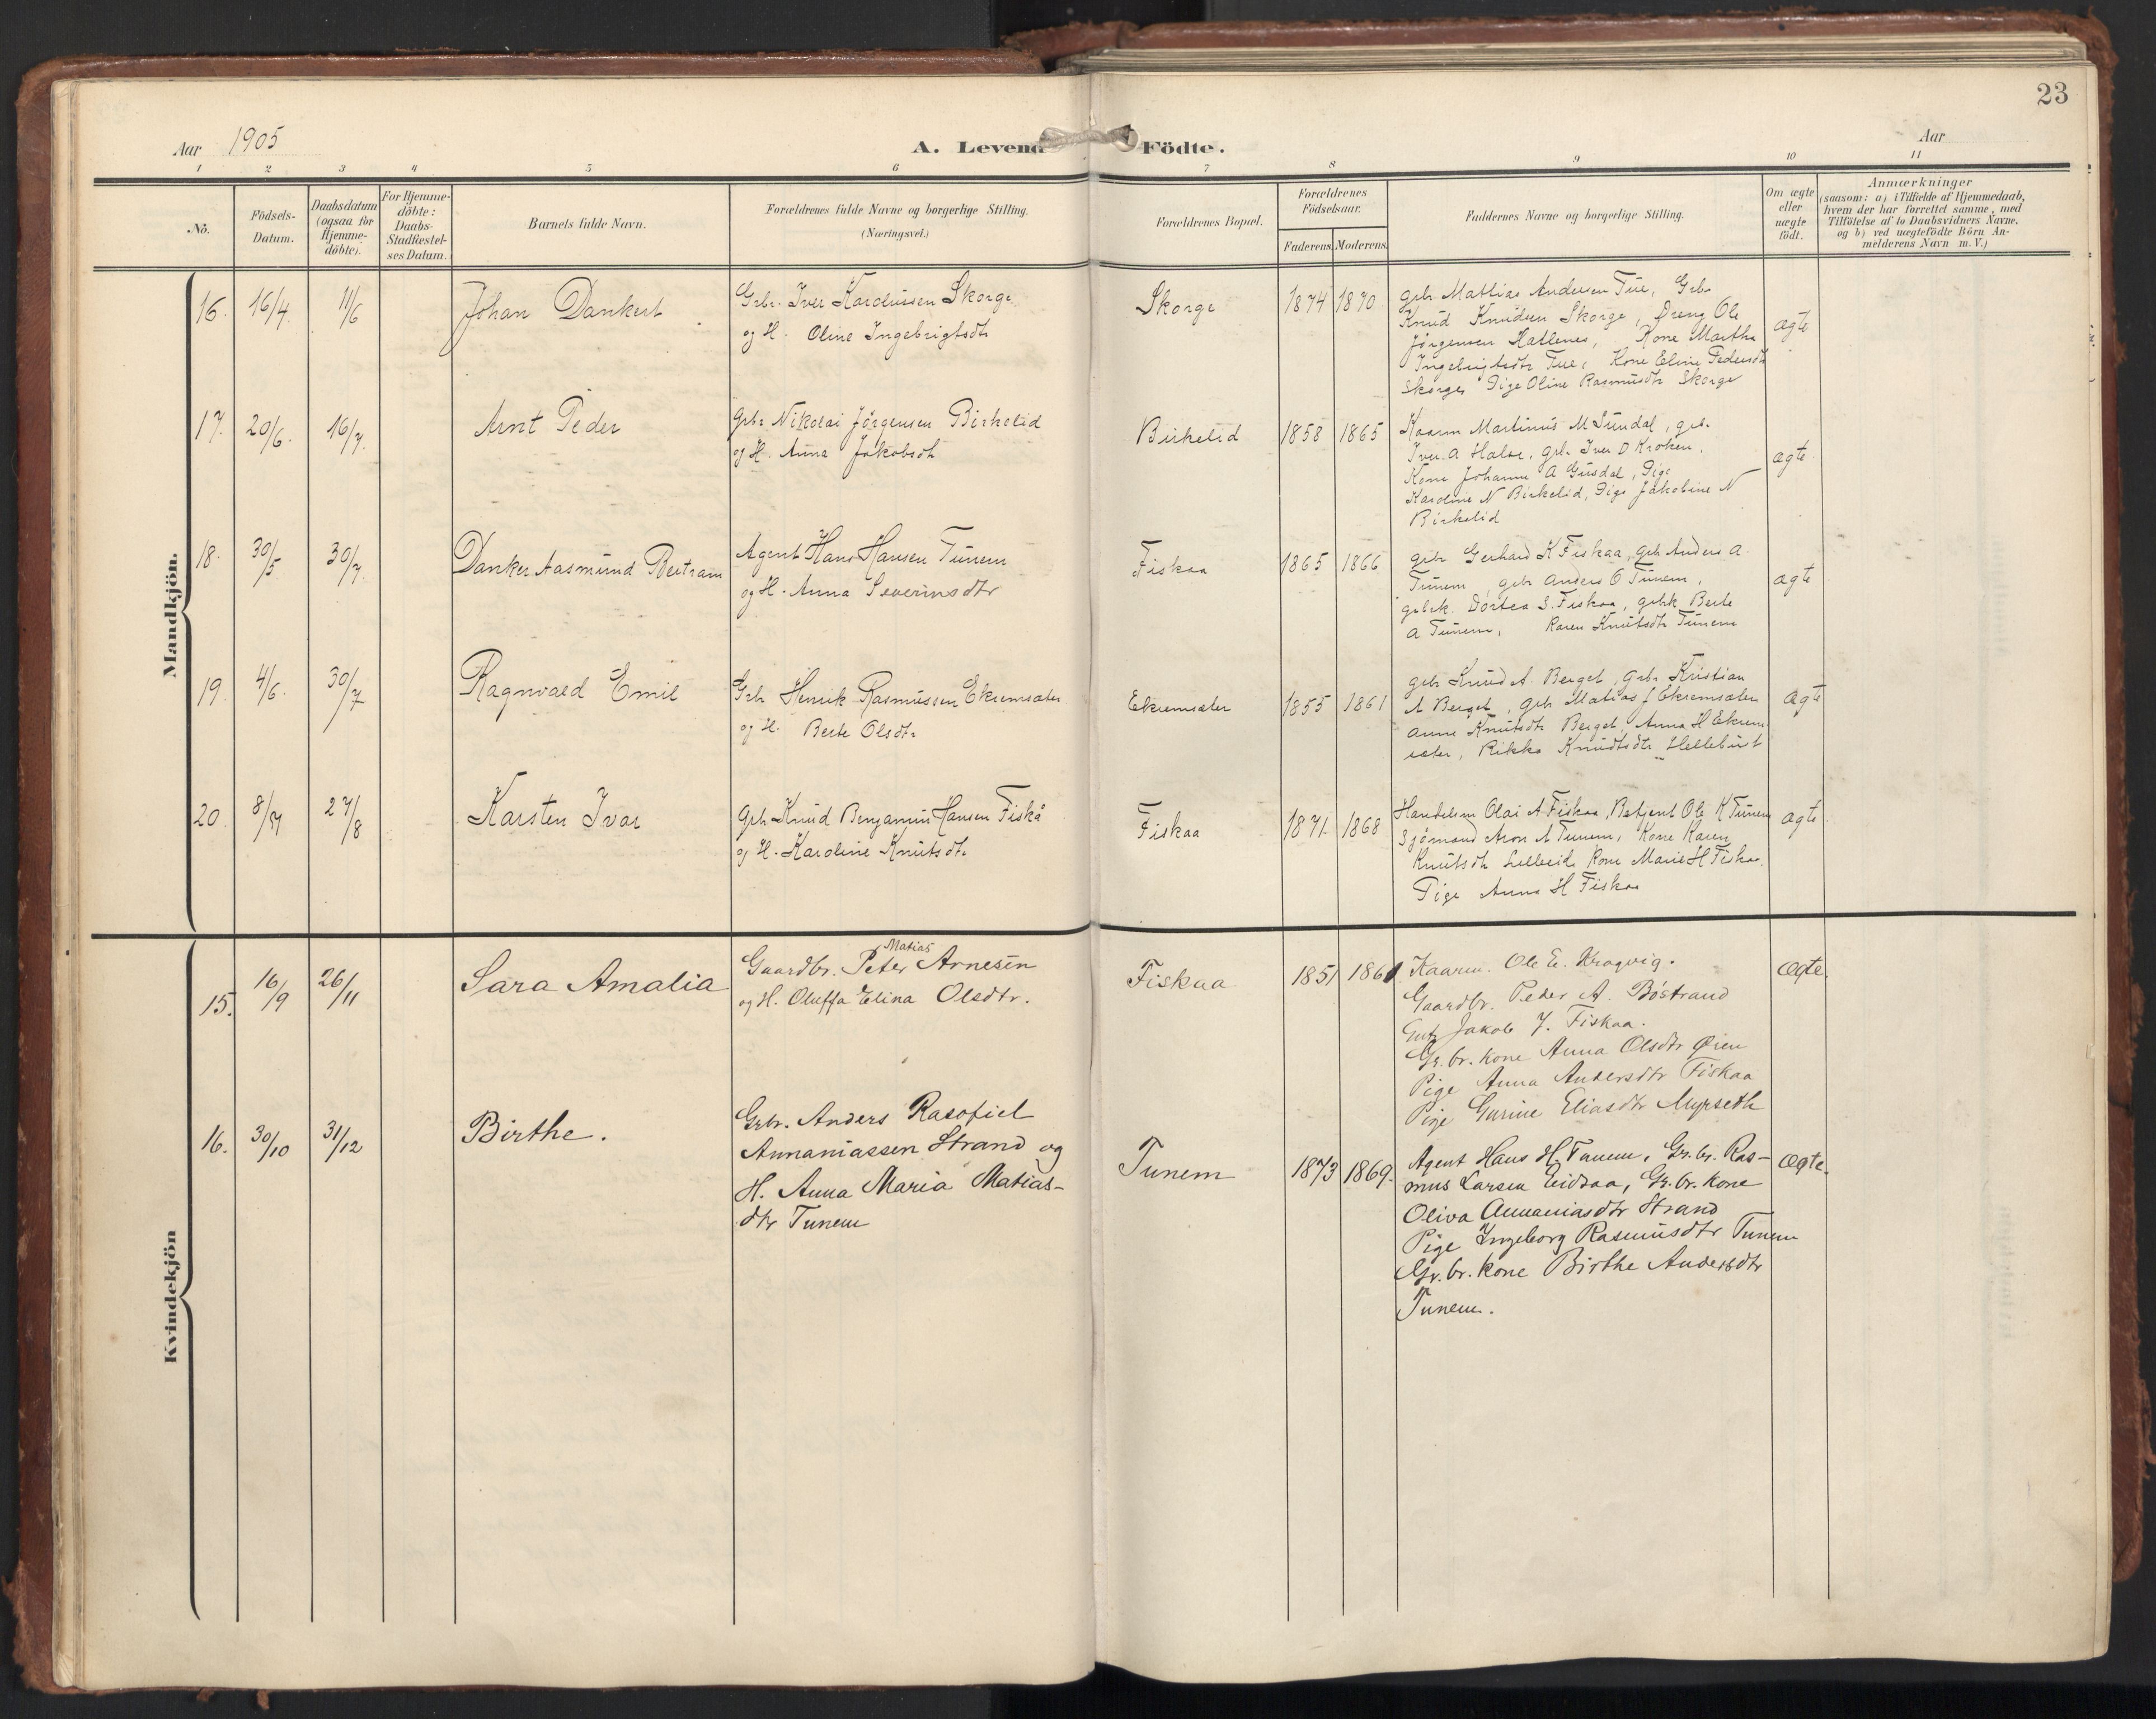 23
Aar 1905
A. Levend Födte.
Aar
1 2 3 4 5 6 7 8 9 10 11
No.
Födsels-
Datum.
Daabsdatum
(ogsaa for
Hjemme-
döbte).
For Hjemme-
döbte:
Daabs-
Stadfæstel-
ses Datum.
Barnets fulde Navn.
Forældrenes fulde Navne og borgerlige Stilling.
(Næringsvei.)
Forældrenes Bopæl.
Forældrenes
Födselsaar.
Faderens. Moderens.
Faddernes Navne og borgerlige Stilling.
Om ægte
eller
uægte
födt.
Anmærkninger
(saasom: a) i Tilfælde af Hjemmedaab,
hvem der har forrettet samme, med
Tilföielse af to Daabsvidners Navne,
og b) ved uægtefödte Börn An-
melderens Navn m. V.)
Mandkjön.
16. 16/4 11/6
Johan Dankert
Grbr. Iver Skorge
og H. Oline Ingebrigtsdtr
Skorge
1874 1870
gbr Mattias Andersen Tue, Grbr
Knud Knudsen Skorge, Dreng Ole
Jörgensen Hatlenes, Kone Martha
Ingebrigtsdtr Tue, Kone Eline Pedersdtr
Skorge, Pige Oline Rasmusdtr Skorge
ægte
17. 20/6. 16/7.
Arnt Peder
Grbr Nikolai Jörgensen Birkelid
og H. Anna Jakobsdt
Birkelid
1858 1865
Kaarm Martinus M Sundal, gbr.
Iver A Halse, gbr Iver D Kroken,
Kone Johanne A Gusdal, Pige
Karoline N Birkelid, Pige Jakobine N
Birkelid
ægte
18. 30/5 30/7.
Danker Aasmund Bertram
Agent Hans Hansen Tunem
og H. Anna Severinsdtr
Fiskaa
1865 1866
gbr Gerhard K Fiskaa, gbr Anders A.
Tunem, gbr Anders O Tunem,
gbrk. Dortea S. Fiskaa, gbrk Berte
A Tunem, Karen Knutsdtr Tunem
ægte
19. 4/6. 30/7
Ragnvald Emil
Grbr Henrik Rasmussen Ekremsæter
og H. Berte Olsdtr
Ekremsæter
1855 1861
gbr Knud A. Berget, Grbr Kristian
A Berget, Gbr Matias J Ekremsæter
Anne Knutsdtr Berget, Anna H Ekrem
sæter, Rikka Knudtsdtr Hellebust
ægte
20. 8/7 27/8
Karsten Ivar
Grbr Knud Benjamin Hansen Fiskå
og H. Karoline Knutsdtr
Fiskaa
1871. 1868
Handelsm Olai A Fiskaa, Betjent Ole K Tunem
Sjömand Aron A Tunem, Kone Karen
Knutsdtr Lilleeid, Kone Marie H Fiskaa.
Pige Anna H Fiskaa
ægte
Kvindekjön
15. 16/9 26/11
Sara Amalia
Matias
Gaardbr. Peter Arnesen
og H. Oluffa Elina Olsdtr.
Fiskaa
1851 1861
Kaarm. Ole E. Kragvig.
Gaardbr. Peder A. Böstrand
Gut Jakob J. Fiskaa.
Gr.br. kone Anna Olsdtr Øien
Pige Anna Andersdtr Fiskaa
Pige Gurine Eliasdtr Myrseth
ægte.
16. 30/10 31/12
Birthe.
Grbr. Anders Rasofiel
Annaniassen Strand og
H. Anna Maria Matias-
dtr Tunem
Tunem
1873 1869.
Agent Hans H. Tunem, Gr.br. Ras-
mus Larsen Eidsaa, Gr.br. kone
Oliva Annaniasdtr Strand
Pige Ingeborg Rasmusdtr Tunem
Gr.br. kone Birthe Andersdtr
Tunem.
ægte.